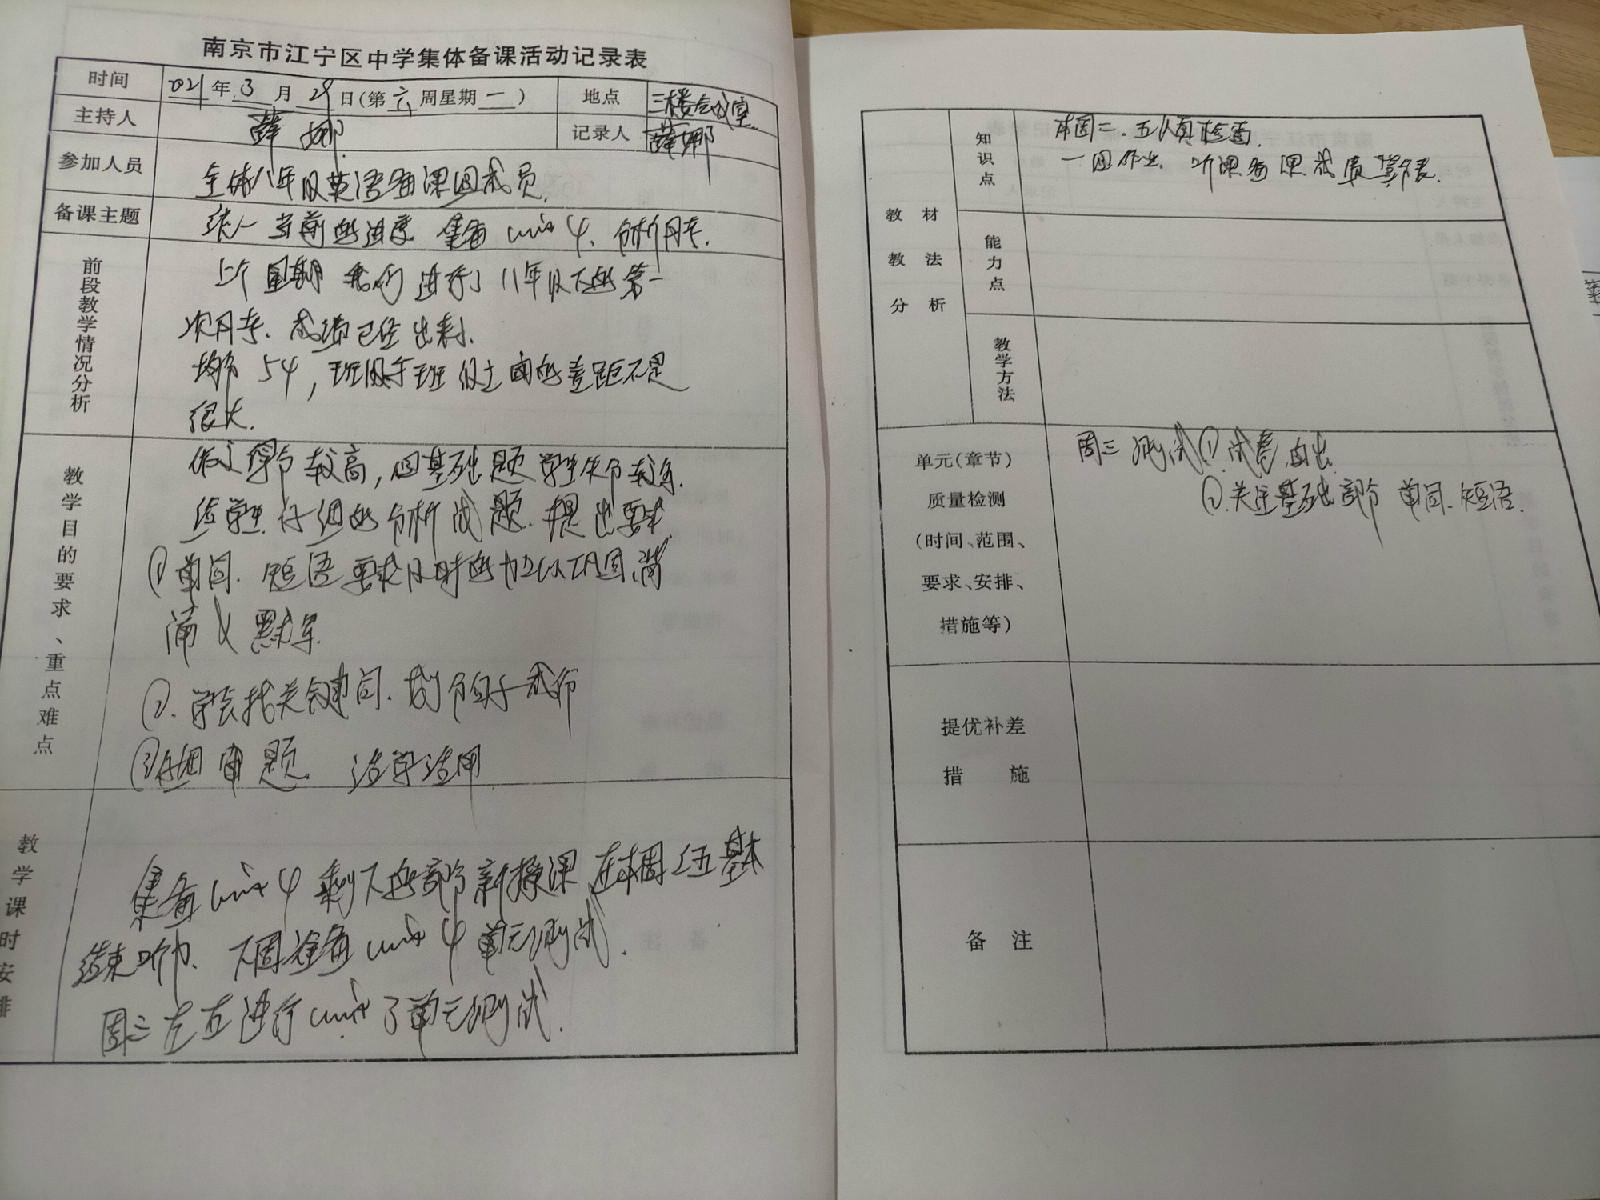 南京市江宁区中学集体备课活动记录表
时间 2021年3月29日(第六周星期一) 地点 三楼会议室
主持人 薛娜 记录人 薛娜
参加人员 全体八年级英语备课组成员
备课主题 统一当前的进度 集备unit 4、分析月考.
前段教学情况分析
上个星期我们进行了八年级下的第一
次月考. 成绩已经出来.
均分54, 班级于班级之间的差距不是
很大.
教学目的要求、重点难点
作文得分较高, 但基础题学生失分较多.
给学生仔细的分析试题. 提出要求
① 单词. 短语要求及时的加以巩固,
默写
②. 学会找关键词. 划分句子成分
③ 仔细审题 活学活用
教学课时安排
集备unit 4 剩下的部分新授课 在本周五基本
结束 下周准备unit 4 单元测试.
周三左右进行unit 3 单元测试.
教材教法分析
知识点
本周二. 五认真检查.
一周作业 听课备课 成员
能力点
教学方法
单元(章节)
质量检测
(时间、范围、
要求、安排、
措施等)
周三测试 ① 试卷 出.
② 关注基础部分 单词. 短语.
提优补差
措施
备注